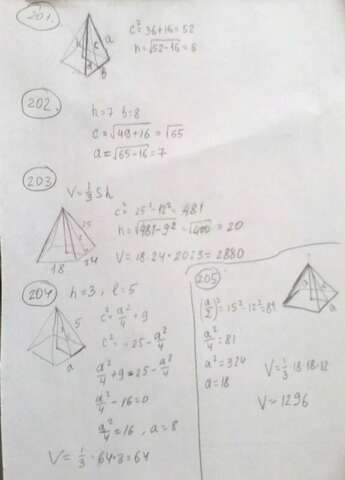 201.
c² = 36+16 = 52
h = √52-16 = 6
a
h
c
b
202.
h = 7 b = 8
c = √49+16 = √65
a = √65-16 = 7
203
V = 1/3 Sh
c² = 25² - 12² = 481
h = √481-9² = √400 = 20
V = 18·24·20:3 = 2880
25
18
24
204
h = 3, l = 5
c² = a²/4 + 9
c² = 25 - a²/4
a²/4 + 9 = 25 - a²/4
a²/4 - 16 = 0
a²/4 = 16, a = 8
V = 1/3 · 64·3 = 64
5
a
205
(a/2)² = 15² - 12² = 81
a²/4 = 81
a² = 324
a = 18
V = 1/3 · 18·18·12
V = 1296